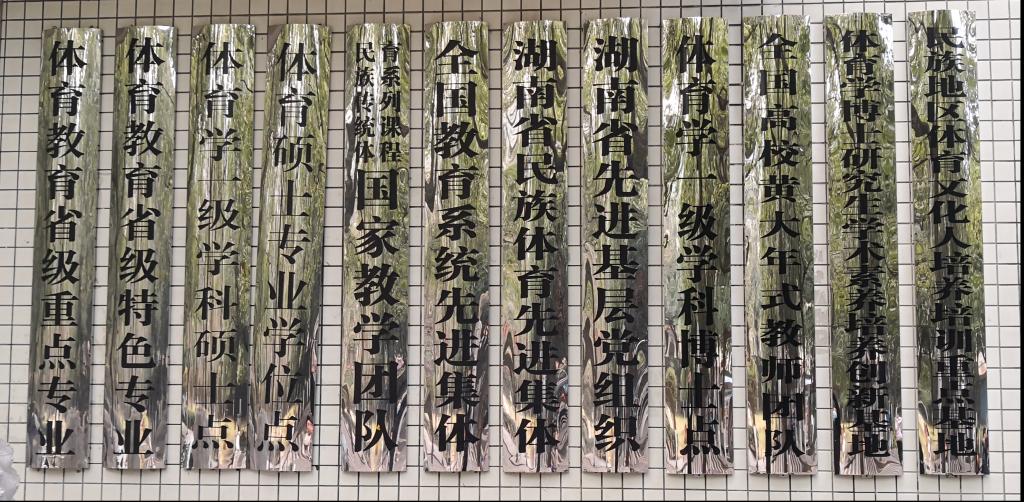 体育教育省级重点专业
体育教育省级特色专业
体育学一级学科硕士点
体育硕士专业学位点
民族传统体育系列课程国家教学团队
全国教育系统先进集体
湖南省民族体育先进集体
湖南省先进基层党组织
体育学一级学科博士点
全国高校黄大年式教师团队
体育学博士研究生学术素养培养创新基地
民族地区体育文化人培养培训重点基地